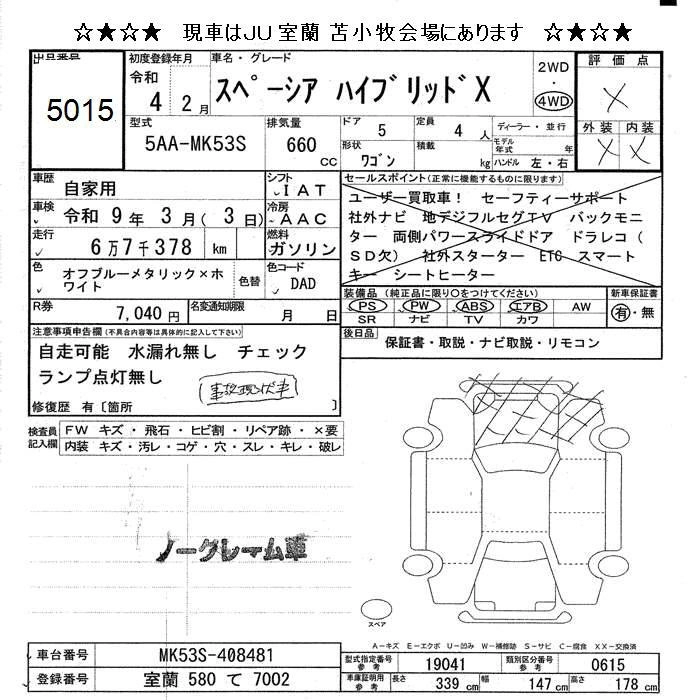 ☆★☆★ 現車はJU室蘭 苫小牧会場にあります ☆★☆★
出品番号
5015
初度登録年月
令和
4 2月
車名・グレード
スペーシア ハイブリッドX
2WD
・
4WD
評価点
×
外装 内装
× ×
型式
5AA-MK53S
排気量
660
cc
ドア
5
定員
4 人
形状
ワゴン
積載
kg
ディーラー・並行
モデル年式 年
ハンドル 左・右
車歴
自家用
シフト
IAT
車検
令和 9年 3月( 3日)
冷房
AAC
走行
6万7千378 km
燃料
ガソリン
色
オフブルーメタリック×ホワイト
色替
色コード
DAD
R券
7,040円
名変通知期限
月 日
セールスポイント(正常に機能するものに限ります)
ユーザー買取車! セーフティーサポート
社外ナビ 地デジフルセグTV バックモニ
ター 両側パワースライドドア ドラレコ(
SD欠) 社外スターター ETC スマート
キー シートヒーター
装備品(純正品に限り○をつけてください)
PS PW ABS エアB AW
SR ナビ TV カワ
新車保証書
有・無
後日品
保証書・取説・ナビ取説・リモコン
注意事項申告欄(不具合内容等は具体的に記入して下さい)
自走可能 水漏れ無し チェック
ランプ点灯無し
事故現状車
修復歴 有〔箇所 〕
検査員記入欄
FW キズ・飛石・ヒビ割・リペア跡・×要
内装 キズ・汚レ・コゲ・穴・スレ・キレ・破レ
ノークレーム車
スペア
A-キズ E-エクボ U-凹み W-補修跡 S-サビ C-腐食 XX-交換済
車台番号
MK53S-408481
登録番号
室蘭 580 て 7002
型式指定番号
参考
19041
類別区分番号
参考
0615
車庫証明用
参考
長さ 339 cm 幅 147 cm 高さ 178 cm